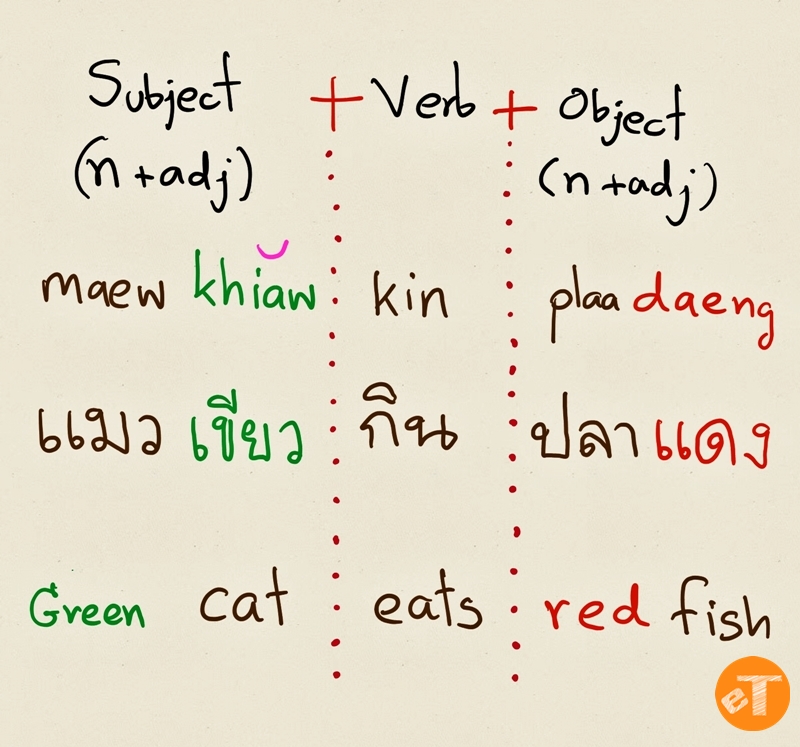 Subject + Verb + Object
(n + adj) (n + adj)
maew khiǎw kin plaa daeng
แมว เขียว กิน ปลา แดง
Green cat eats red fish
eT